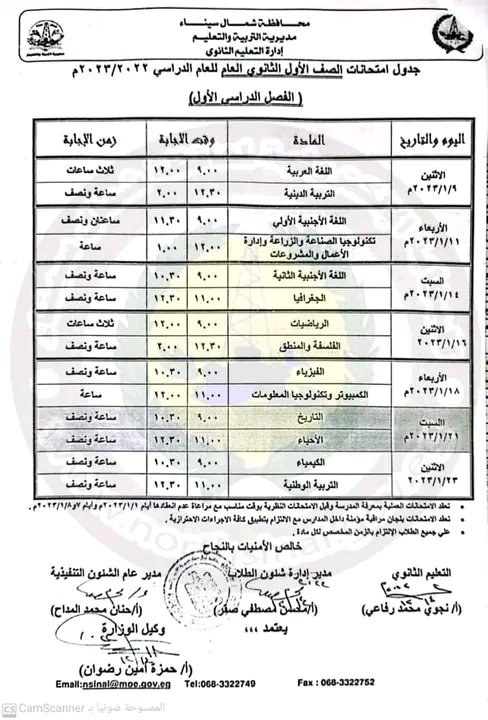 محافظة شمال سيناء
مديرية التربية والتعليم
إدارة التعليم الثانوى
جدول امتحانات الصف الأول الثانوي العام للعام الدراسي ٢٠٢٣/٢٠٢٢م
( الفصل الدراسي الأول)
اليوم والتاريخ المادة وقت الاجابة زمن الإجابة
الاثنين ٢٠٢٣/١/٩م
اللغة العربية ٩.٠٠ ١٢.٠٠ ثلاث ساعات
التربية الدينية ١٢.٣٠ ٢.٠٠ ساعة ونصف
الأربعاء ٢٠٢٣/١/١١م
اللغة الأجنبية الأولي ٩.٠٠ ١١.٣٠ ساعتان ونصف
تكنولوجيا الصناعة والزراعة وإدارة الأعمال والمشروعات ١٢.٠٠ ١.٠٠ ساعة
السبت ٢٠٢٣/١/١٤م
اللغة الأجنبية الثانية ٩.٠٠ ١٠.٣٠ ساعة ونصف
الجغرافيا ١١.٠٠ ١٢.٣٠ ساعة ونصف
الاثنين ٢٠٢٣/١/١٦
الرياضيات ٩.٠٠ ١٢.٠٠ ثلاث ساعات
الفلسفة والمنطق ١٢.٣٠ ٢.٠٠ ساعة ونصف
الأربعاء ٢٠٢٣/١/١٨م
الفيزياء ٩.٠٠ ١٠.٣٠ ساعة ونصف
الكمبيوتر وتكنولوجيا المعلومات ١١.٠٠ ١٢.٠٠ ساعة
السبت ٢٠٢٣/١/٢١م
التاريخ ٩.٠٠ ١٠.٣٠ ساعة ونصف
الأحياء ١١.٠٠ ١٢.٣٠ ساعة ونصف
الاثنين ٢٠٢٣/١/٢٣
الكيمياء ٩.٠٠ ١٠.٣٠ ساعة ونصف
التربية الوطنية ١١.٠٠ ١٢.٣٠ ساعة ونصف
تعقد الامتحانات العملية بمعرفة المدرسة وقبل الامتحانات النظرية بوقت مناسب مع مراعاة عدم انعقادها أيام ١/١/٢٠٢٣م وأيام ٧و١/٨/٢٠٢٣م.
تعقد الامتحانات بلجان مراقبة مؤمنة داخل المدارس مع الالتزام بتطبيق كافة الاجراءات الاحترازية .
علي جميع الطلاب الإلتزام بالزمن المخصص لكل مادة .
خالص الأمنيات بالنجاح
التعليم الثانوي مدير إدارة شئون الطلاب مدير عام الشئون التنفيذية
(أ/ نجوي محمد رفاعي) (أ/ محسن مصطفي صقر) (أ/حنان محمد المداح)
يعتمد ،،،
وكيل الوزارة
(أ/ حمزة أمين رضوان)
Email:nsinal@moe.gov.eg Tel:068-3322749 Fax : 068-3322752
CS CamScanner الممسوحة ضوئيا بـ